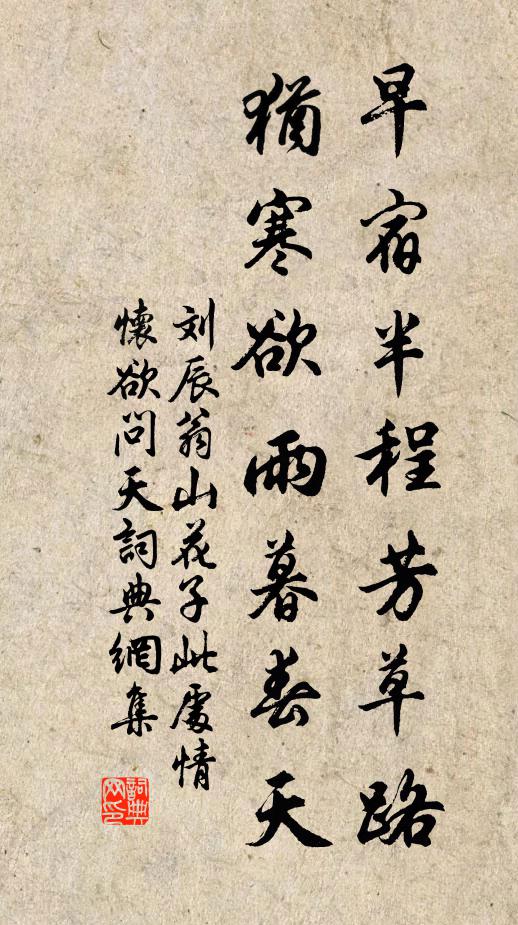 早宿半程芳草路
猶寒欲雨暮春天
刘辰翁山花子此處情
懷欲問天詞典網集
詞典
网印